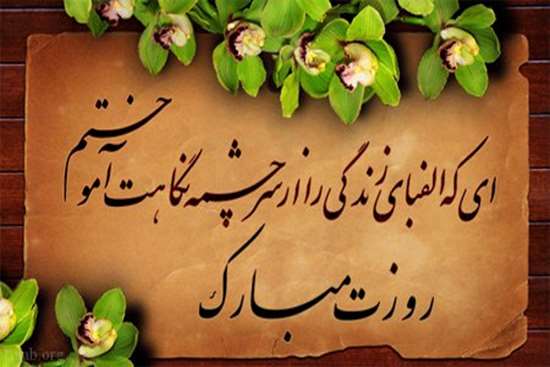 ای که الفبای زندگی را از سرچشمه نگاهت آموختم
روزت مبارک